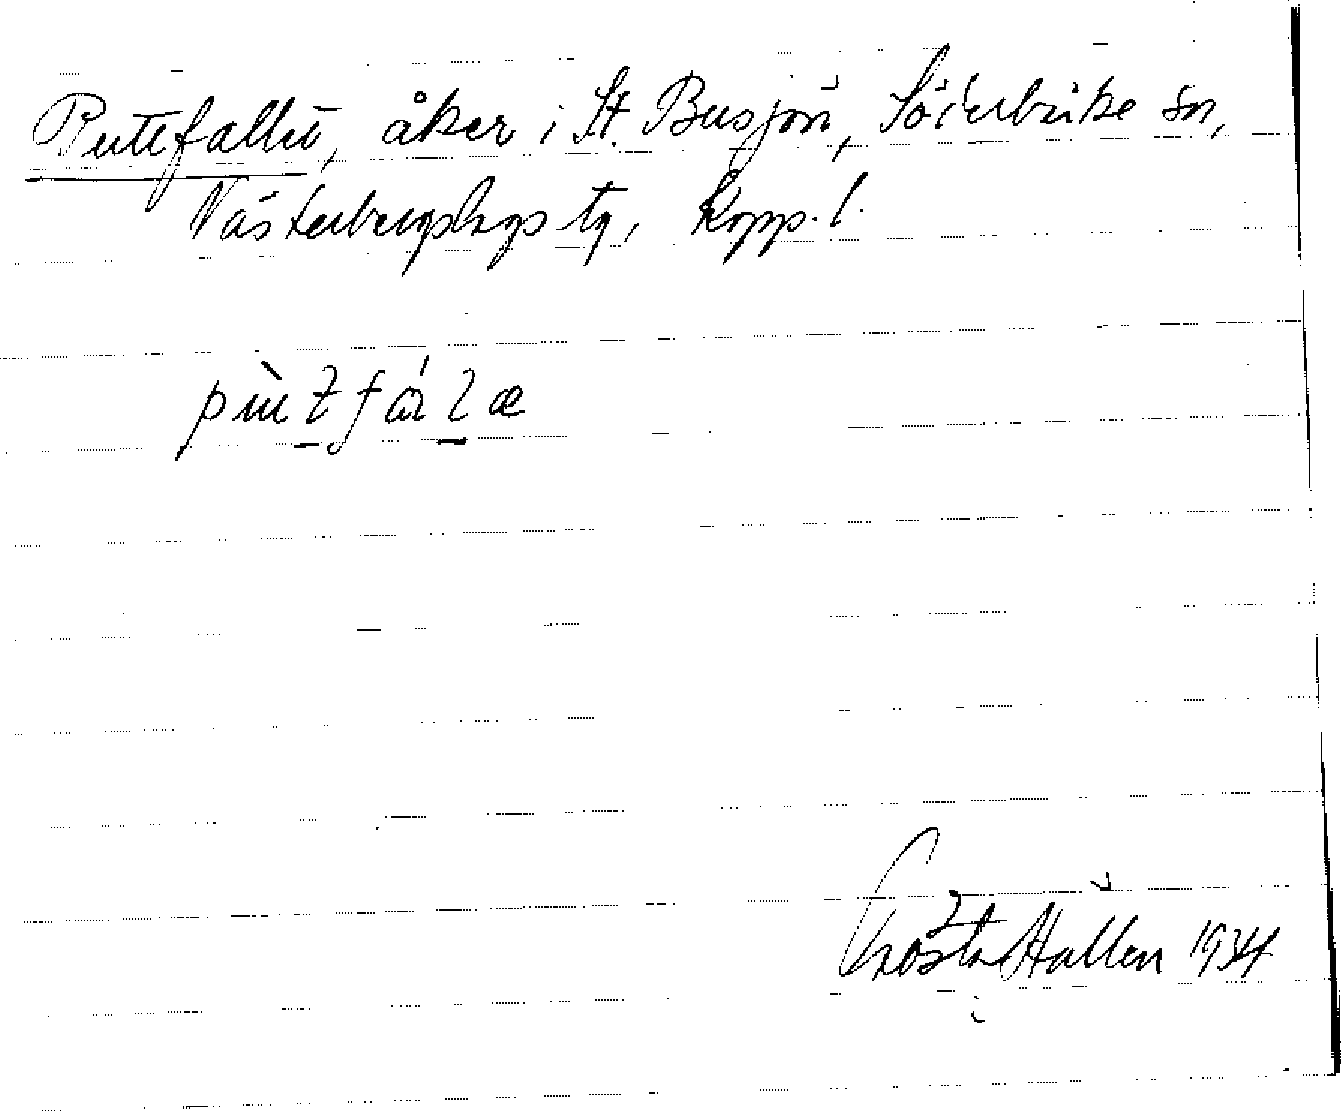 Putefallet, åker i St. Busjön, Söderbärke sn,
Västerbergslags tg, Kopp. l.
Gösta Hallén 1934